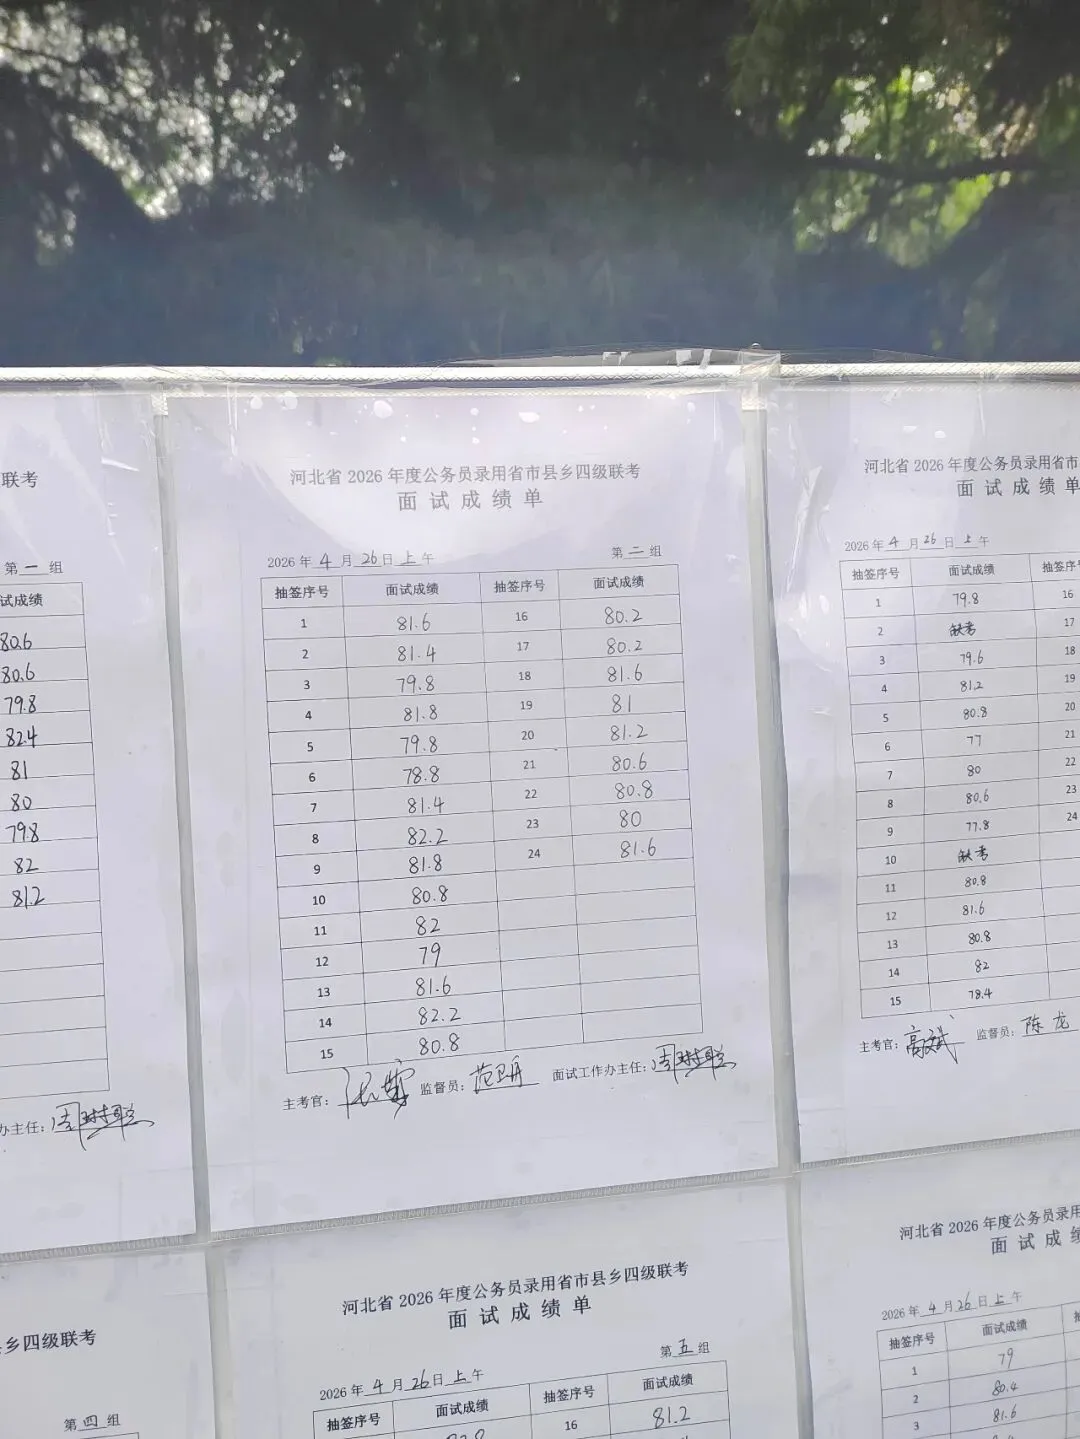 联考
第一组
试成绩
80.6
80.6
79.8
82.4
81
80
79.8
82
81.2
办主任:
河北省 2026 年度公务员录用省市县乡四级联考
面试成绩单
2026 年 4 月 26 日 上 午 第 二 组
抽签序号 面试成绩 抽签序号 面试成绩
1 81.6 16 80.2
2 81.4 17 80.2
3 79.8 18 81.6
4 81.8 19 81
5 79.8 20 81.2
6 78.8 21 80.6
7 81.4 22 80.8
8 82.2 23 80
9 81.8 24 81.6
10 80.8
11 82
12 79
13 81.6
14 82.2
15 80.8
主考官: 监督员: 面试工作办主任:
河北省 2026 年度公务员录用省市
面试成绩单
2026 年 4 月 26 日 上 午
抽签序号 面试成绩 抽签序号
1 79.8 16
2 缺考 17
3 79.6 18
4 81.2 19
5 80.8 20
6 77 21
7 80 22
8 80.6 23
9 77.8 24
10 缺考
11 80.8
12 81.6
13 80.8
14 82
15 78.4
主考官: 高斌 监督员: 陈龙
乡四级联考
第 四 组
河北省 2026 年度公务员录用省市县乡四级联考
面试成绩单
2026 年 4 月 26 日 上 午 第 五 组
抽签序号 面试成绩 抽签序号 面试成绩
16 81.2
河北省 2026 年度公务员录用
面试成绩
2026 年 4 月 26 日 上 午
抽签序号 面试成绩
1 79
2 80.4
3 81.6